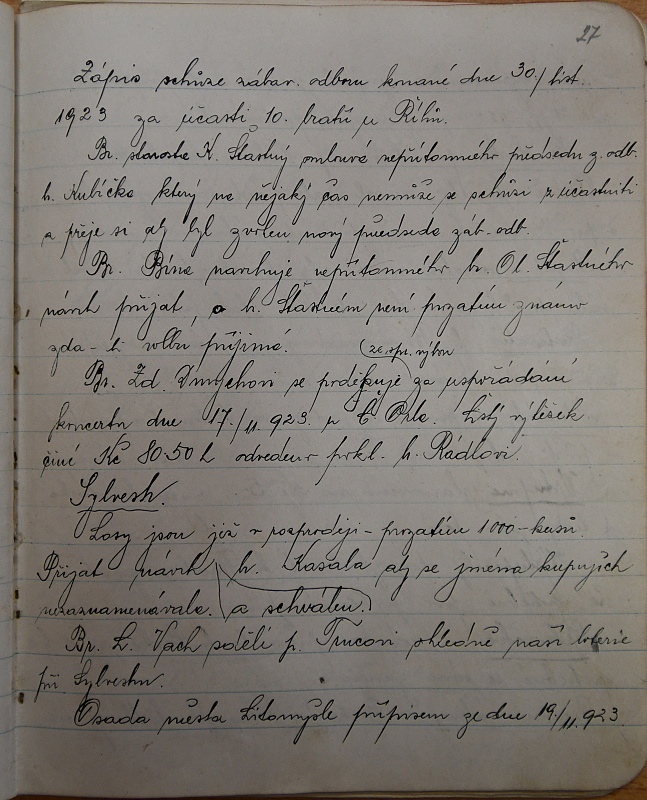 27
Zápis schůze zábav. odboru konané dne 30./ list.
1923 za účasti 10. bratří u Říhů.
Br. starosta K. Šťastný omlouvá nepřítomného předsedu z. odb.
br. Kubíčka který na nějaký čas nemůže se schůzí z účastniti
a přeje si aby byl zvolen nový předseda záb. odb.
Br. Bína navrhuje nepřítomného br. Ol. Šťastného
návrh přijat, a br. Šťastném není prozatím známo
zda-li volbu přijímá.
(ze spr. výboru
Br. Zd. Dmychovi se poděkuje za uspořádání
koncertu dne 17./11. 923. u Č. Orla. Čistý výtěžek
činí Kč 80·50 h odveden pokl. br. Rádlovi.
Sylvestr.
Losy jsou již v rozprodeji - prozatím 1000 - kusů.
Přijat návrh br. Kasala aby se jména kupujících
nezaznamenávala. a schválen.
Br. L. Vach sdělí p. Trucovi ohledně naší loterie
při Sylvestru.
Osada města Litomyšle přípisem ze dne 19./11. 923.